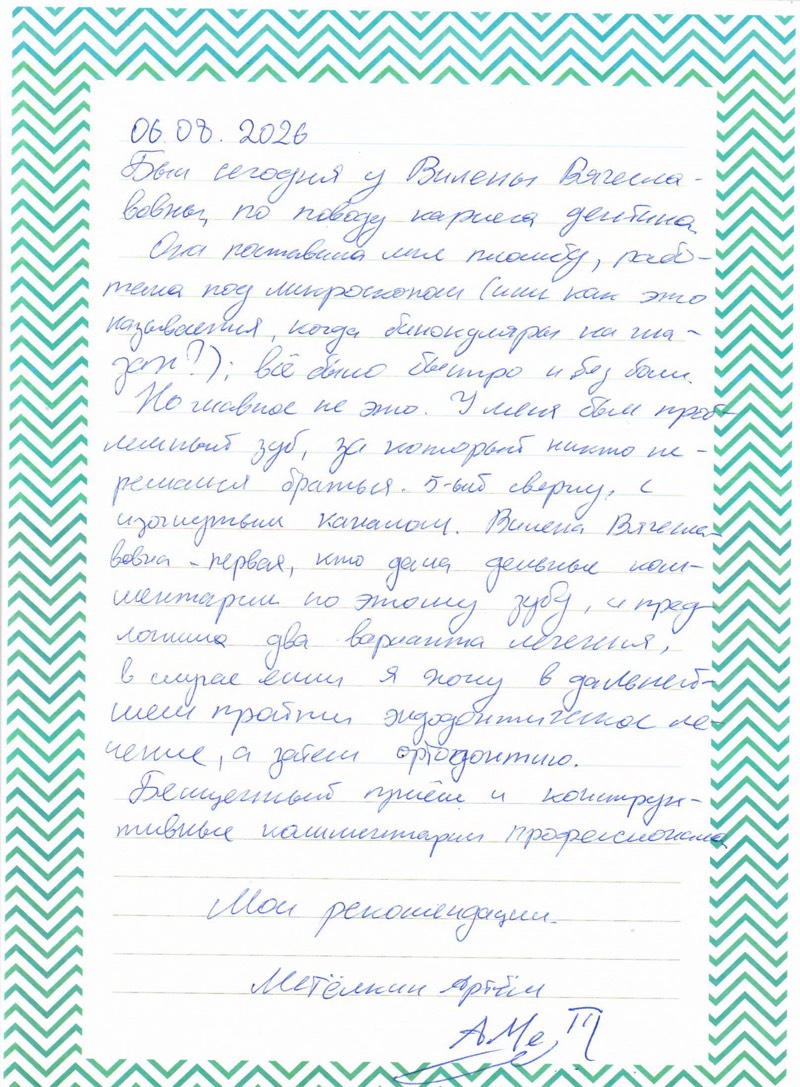 06.08.2026
Был сегодня у Вилены Вячесла-
вовны, по поводу кариеса дентина.
Она поставила мне пломбу, рабо-
тала под микроскопом (или как это
называется, когда бинокуляры на гла-
зах?); всё было быстро и без боли.
Но главное не это. У меня был проб-
лемный зуб, за который никто не
решался браться. 5-ый сверху, с
изогнутым каналом. Вилена Вячесла-
вовна - первая, кто дала дельные ком-
ментарии по этому зубу, и пред-
ложила два варианта лечения,
в случае если я хочу в дальней-
шем пройти эндодонтическое ле-
чение, а затем ортодонтию.
Бесценный приём и конструк-
тивные комментарии профессионала
Мои рекомендации.
Метёлкин Артём